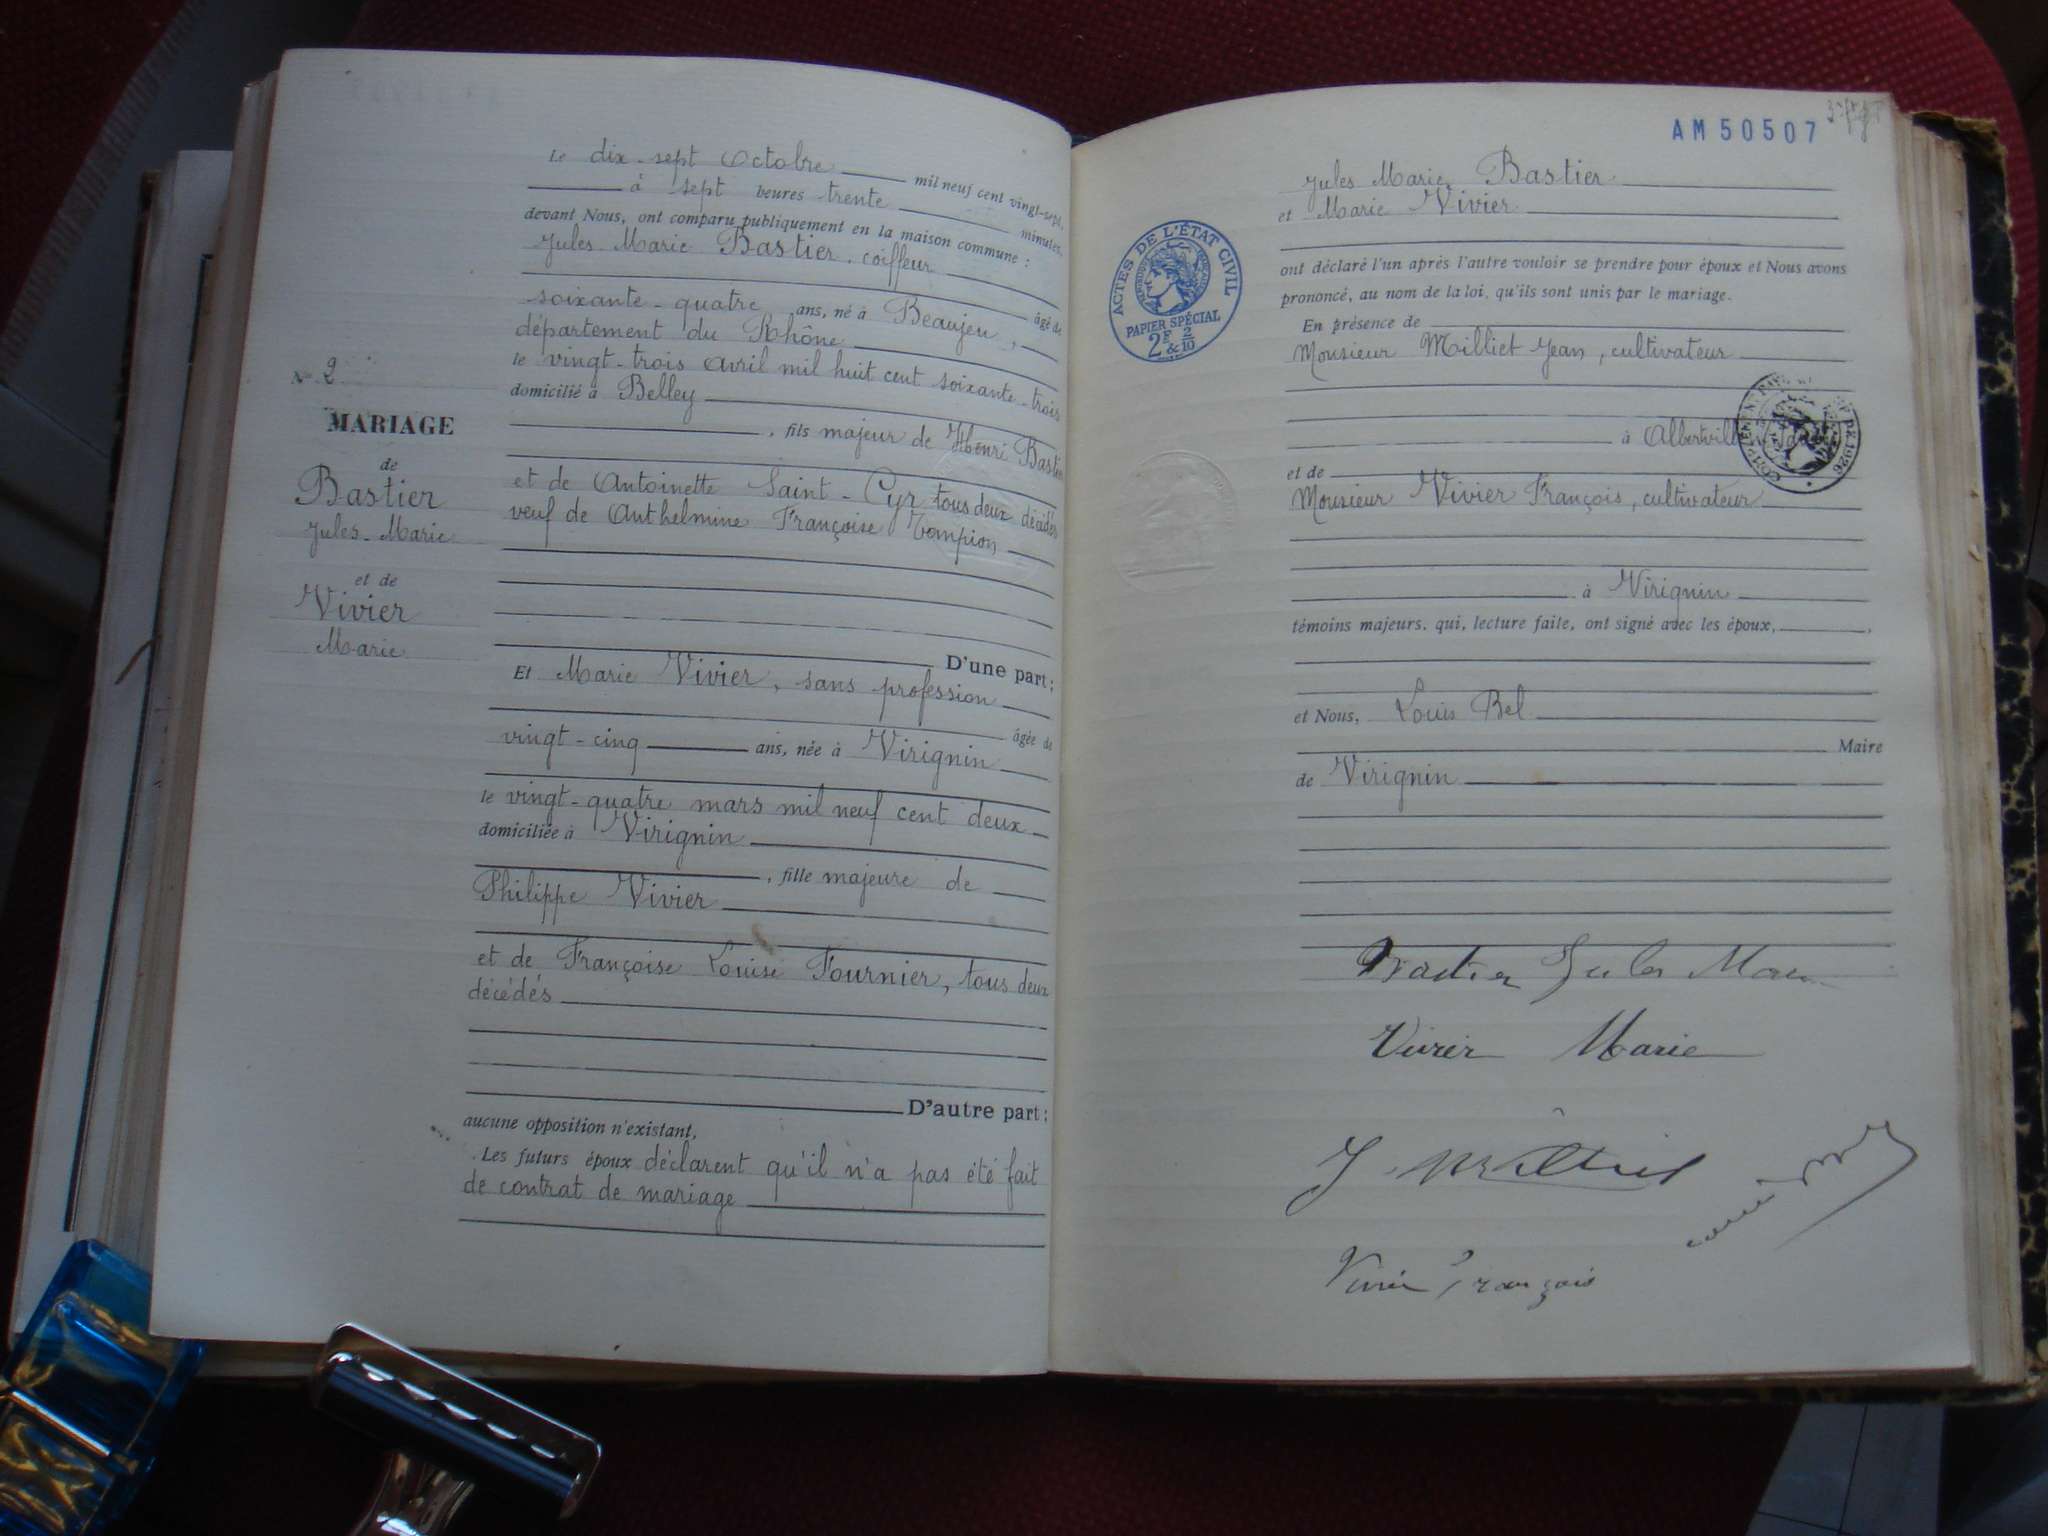 Le dix-sept Octobre mil neuf cent vingt-sept,
à sept heures trente minutes,
devant Nous, ont comparu publiquement en la maison commune :
Jules Marie Bastier, coiffeur
âgé de
soixante-quatre ans, né à Beaujeu,
département du Rhône
le vingt-trois Avril mil huit cent soixante-trois
domicilié à Belley
, fils majeur de Henri Bastier
et de Antoinette Saint-Cyr tous deux décédés
veuf de Anthelmine Françoise Tompion
D'une part;
Et Marie Vivier, sans profession
âgée de
vingt-cinq ans, née à Virignin
le vingt-quatre mars mil neuf cent deux
domiciliée à Virignin
, fille majeure de
Philippe Vivier
et de Françoise Louise Fournier, tous deux
décédés
D'autre part :
aucune opposition n'existant,
Les futurs époux déclarent qu'il n'a pas été fait
de contrat de mariage
N° 2
MARIAGE
de
Bastier
Jules-Marie
et de
Vivier
Marie
AM 50507
Jules Marie Bastier
et Marie Vivier
ont déclaré l'un après l'autre vouloir se prendre pour époux et Nous avons
prononcé, au nom de la loi, qu'ils sont unis par le mariage.
En présence de
Monsieur Milliet Jean, cultivateur
à Albertville
et de
Monsieur Vivier François, cultivateur
à Virignin
témoins majeurs, qui, lecture faite, ont signé avec les époux,
et Nous, Louis Bel
Maire
de Virignin
ACTES DE L'ÉTAT CIVIL
PAPIER SPÉCIAL
2F & 2/10
Bastier Jules Marie
Vivier Marie
J. Milliet
Vivier François